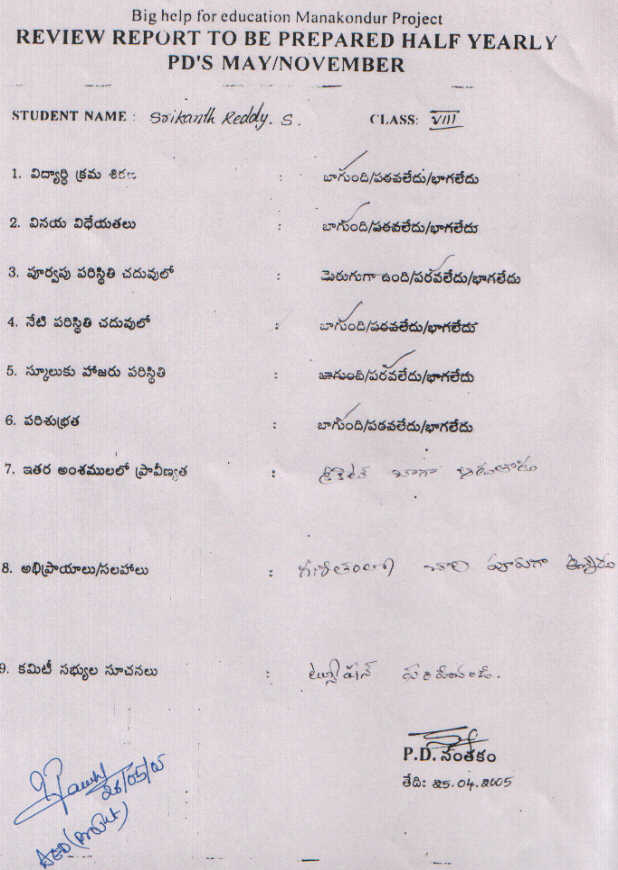 Big help for education Manakondur Project
REVIEW REPORT TO BE PREPARED HALF YEARLY
PD'S MAY/NOVEMBER
STUDENT NAME : Srikanth Reddy. S. CLASS: VIII
1. విద్యార్థి క్రమ శిక్షణ : బాగుంది/పరవలేదు/భాగలేదు
2. వినయ విధేయతలు : బాగుంది/పరవలేదు/భాగలేదు
3. పూర్వపు పరిస్థితి చదువులో : మెరుగుగా ఉంది/పరవలేదు/భాగలేదు
4. నేటి పరిస్థితి చదువులో : బాగుంది/పరవలేదు/భాగలేదు
5. స్కూలుకు హాజరు పరిస్థితి : బాగుంది/పరవలేదు/భాగలేదు
6. పరిశుభ్రత : బాగుంది/పరవలేదు/భాగలేదు
7. ఇతర అంశములలో ప్రావీణ్యత : క్రికెట్ బాగా ఆడుతాడు
8. అభిప్రాయాలు/సలహాలు : గణితంలో చాల పూర్‌గా ఉన్నాడు
9. కమిటీ సభ్యుల సూచనలు : ట్యూషన్
P.D. సంతకం
తేది: 25.04.2005
26/05/05